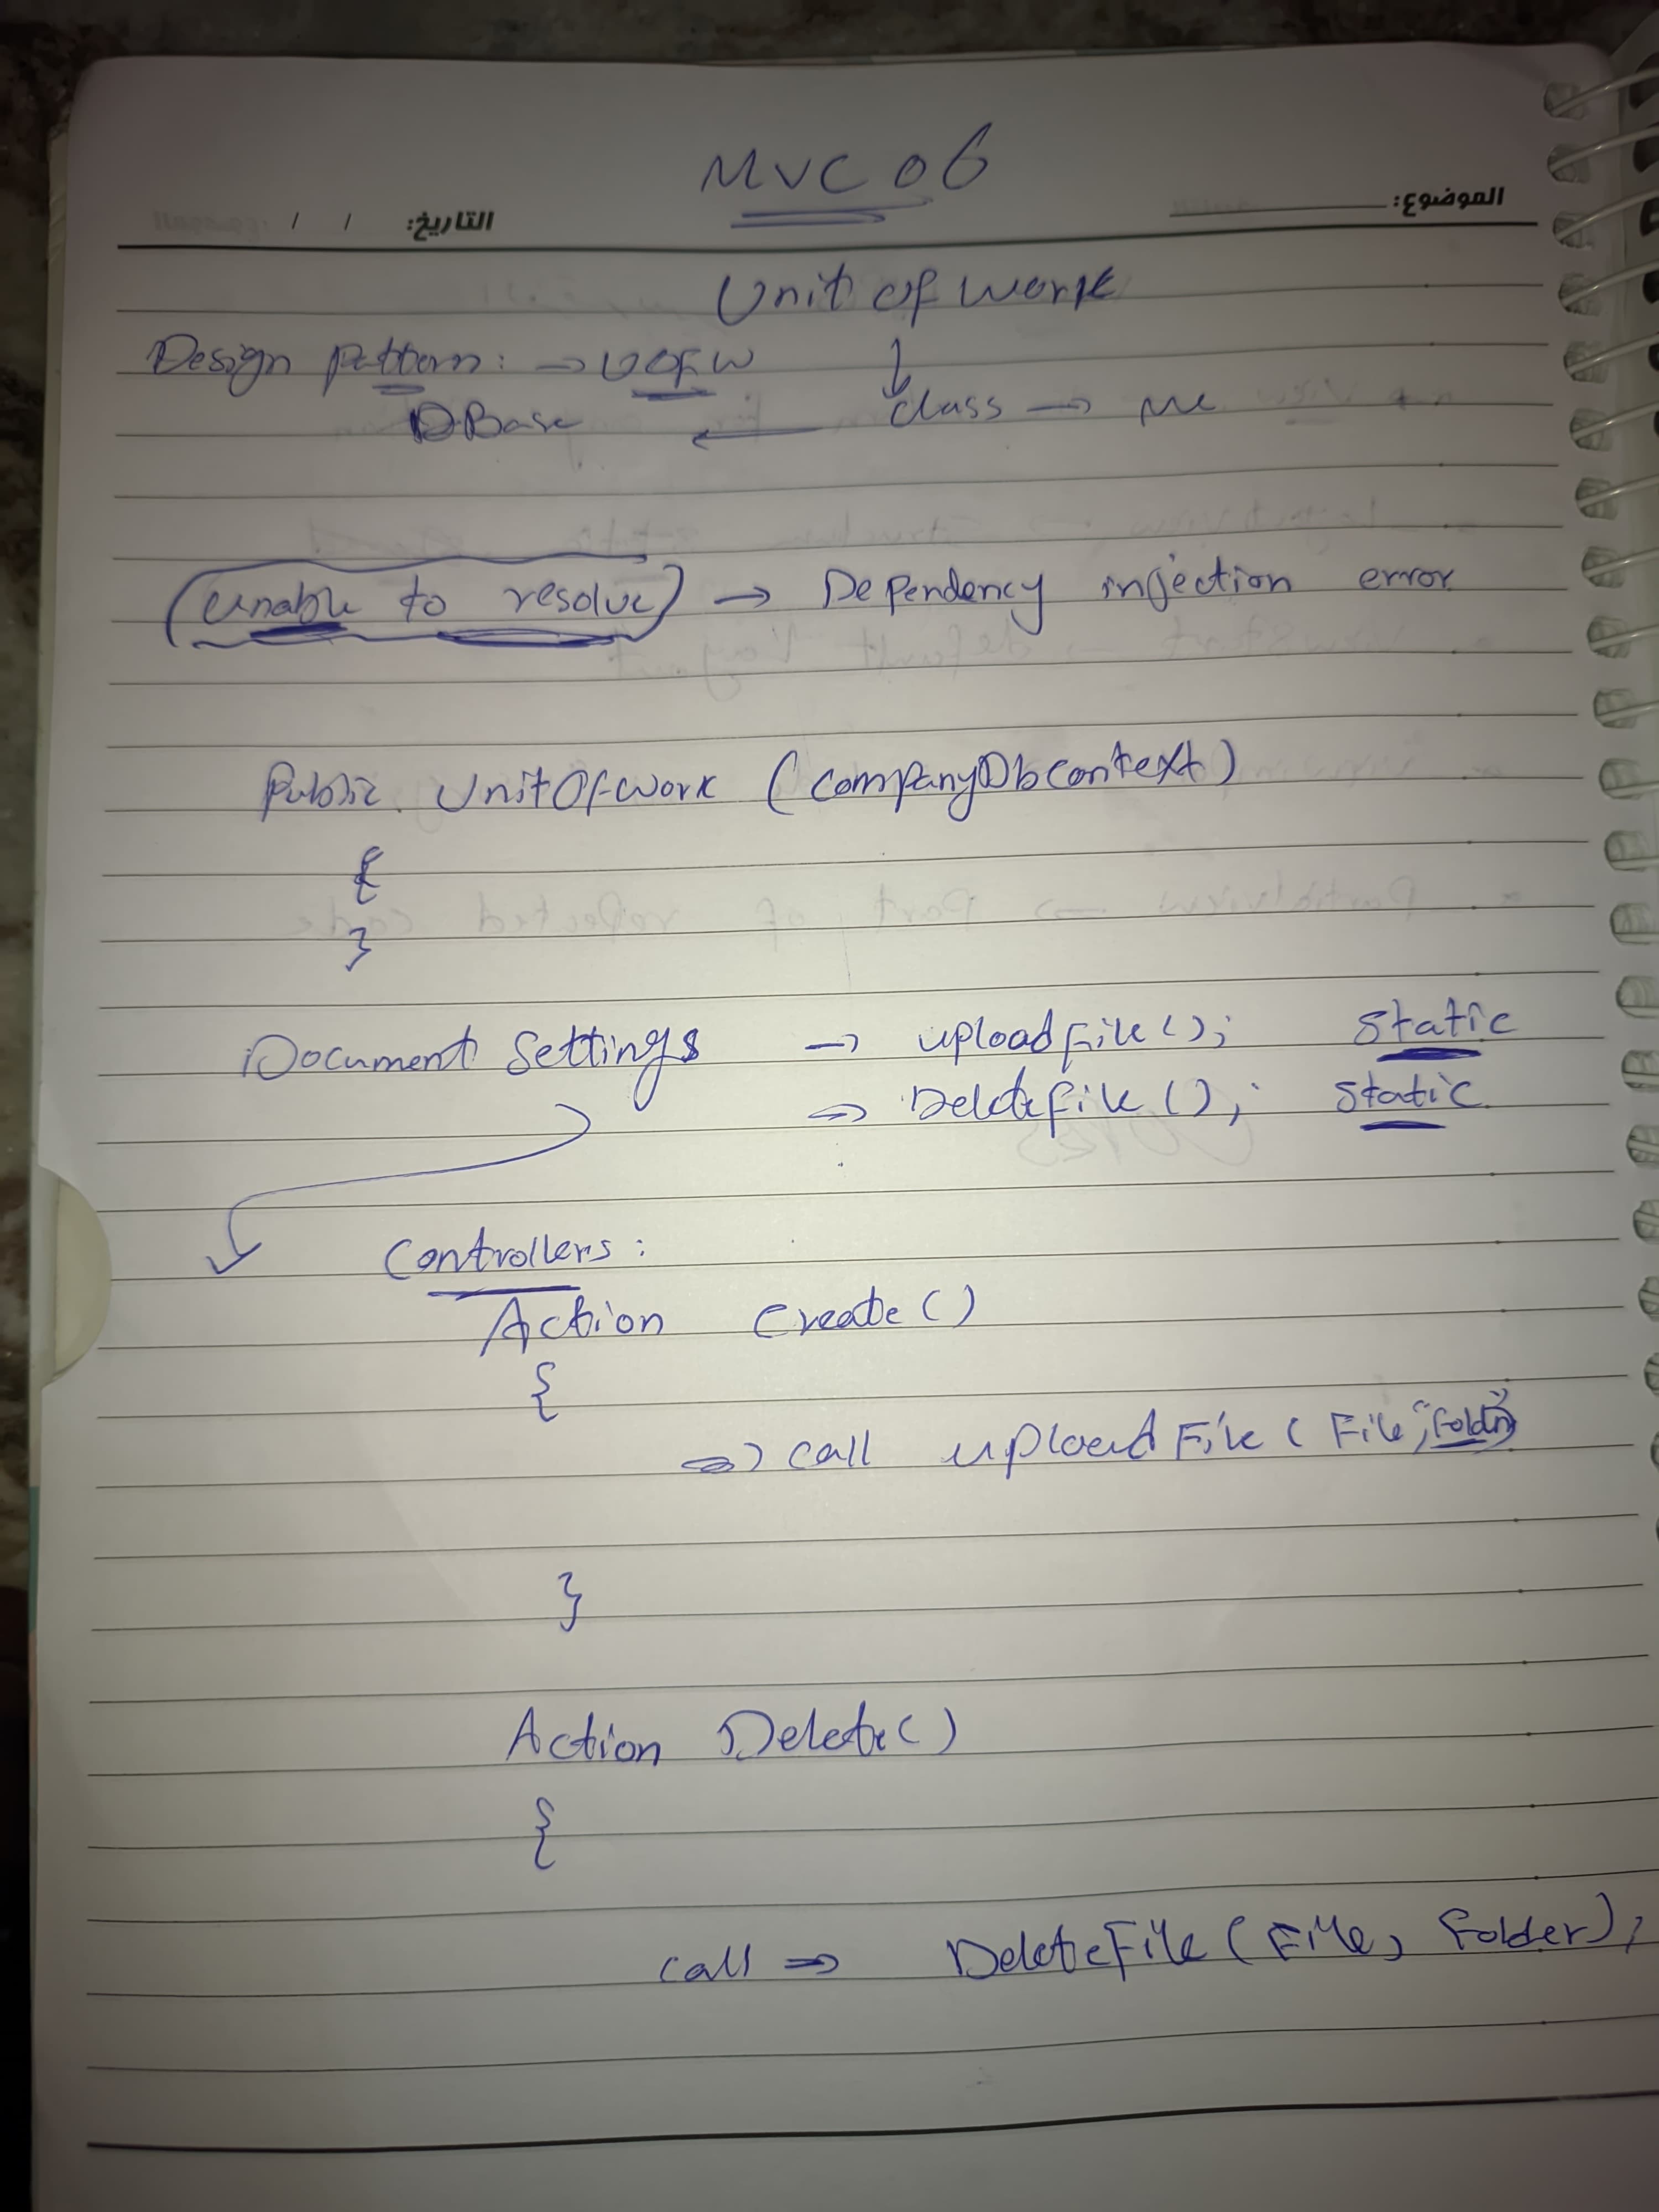 MVC 06
التاريخ: / / الموضوع:
Unit of Work
Design Pattern: → UOFW ↓
DBase ← class → me
(Unable to resolve) → Dependency injection error
Public UnitOfWork (CompanyDbContext)
{
}
Document Settings → uploadFile(); static
⇒ DeleteFile(); static
Controllers:
Action Create()
{
⇒ call uploadFile (File,
}
Action Delete()
{
call ⇒ DeleteFile (File, Folder);